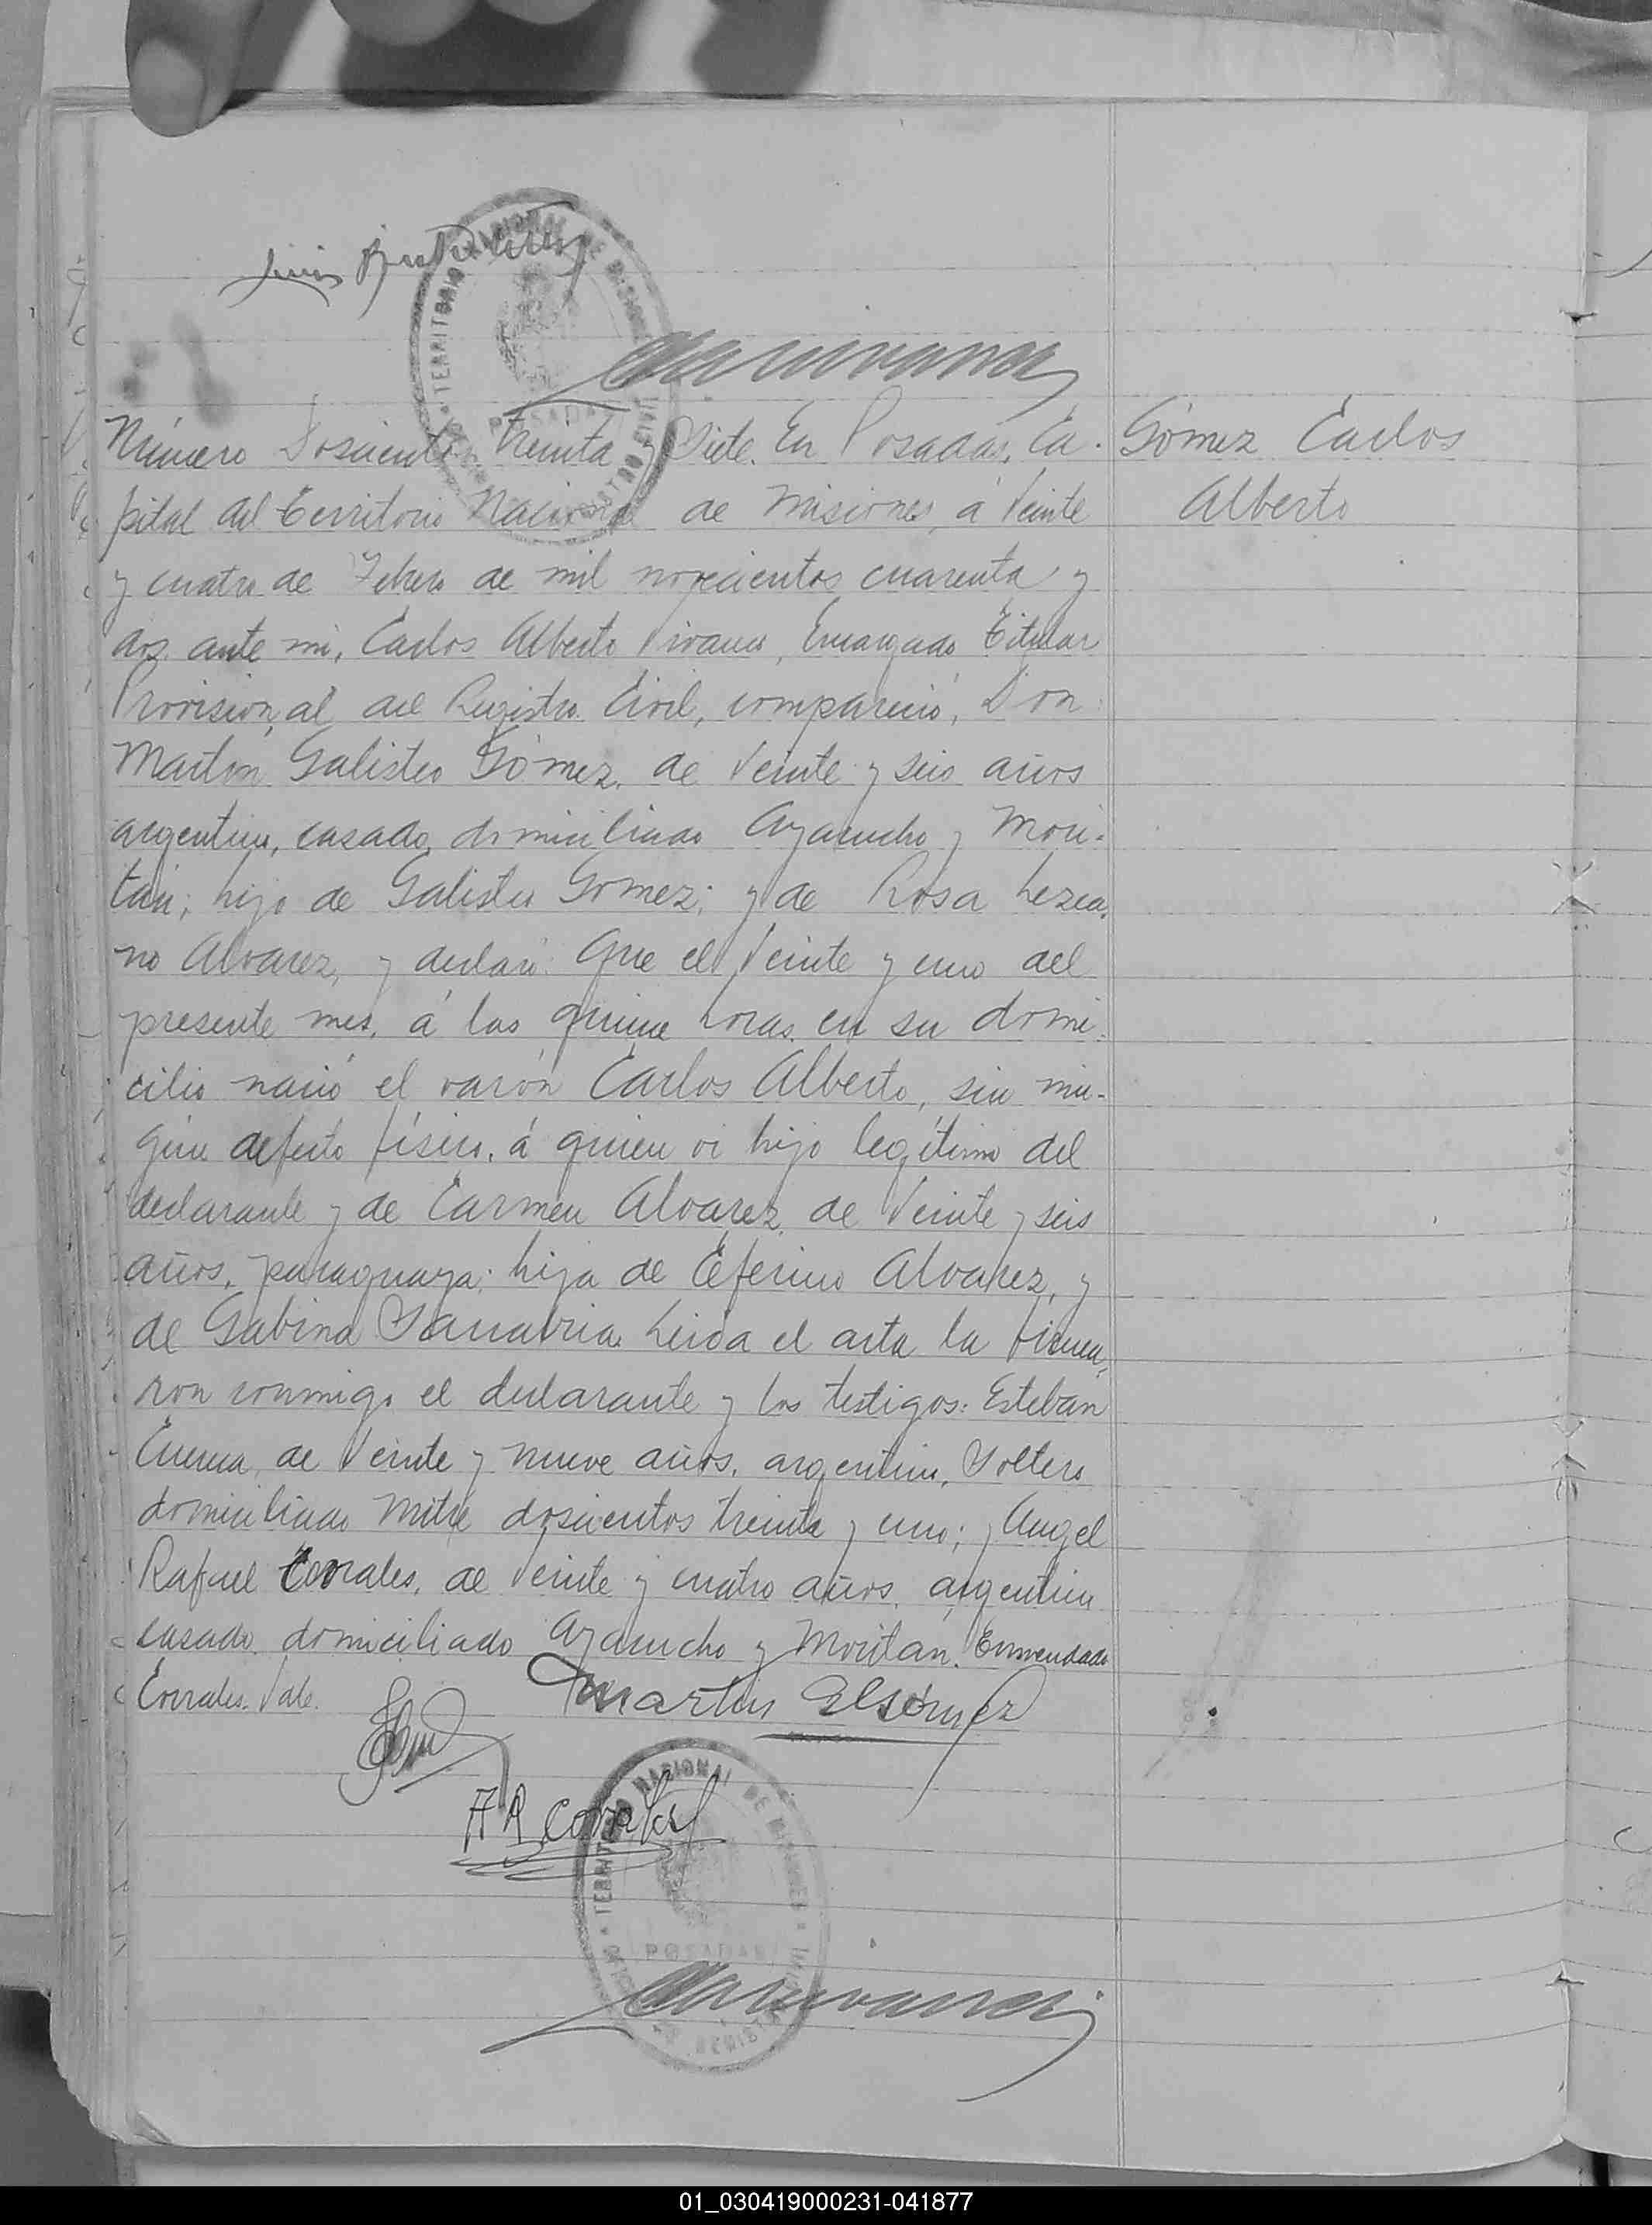 TERRITORIO NACIONAL DE MISIONES
POSADAS
Número Dosciento treinta y Siete. En Posadas, Ca-
Gómez Carlos
Alberto
pital del Territorio Nacional de Misiones, á Veinte
y cuatro de Febrero de mil novecientos cuarenta y
dos, ante mi, Carlos Alberto Vivanco, Encargado Titular
Provisional del Registro Civil, compareció, Don
Martín Galisteo Gómez, de Veinte y seis años
argentino, casado, domiciliado Ayacucho y Mori-
tán; hijo de Galisteo Gomez; y de Rosa Lezca-
no Alvarez, y declaró: Que el Veinte y uno del
presente mes, á las quince horas, en su domi-
cilio nació el varón Carlos Alberto, sin nin-
gún defecto físico, á quien vi hijo legítimo del
declarante y de Carmen Alvarez, de Veinte y seis
años, paraguaya; hija de Ceferino Alvarez, y
de Gabina Sanabria. Leida el acta la firma-
ron conmigo el declarante y los testigos: Esteban
de Veinte y nueve años, argentino, Soltero
domiciliado Mitre doscientos treinta y uno; y Angel
Rafael Corrales, de Veinte y cuatro años, argentino
casado, domiciliado Ayacucho y Moritán. Enmendado
Corrales. Vale.
Martin G Gómez
A R Corrales
TERRITORIO NACIONAL DE MISIONES
POSADAS
01_030419000231-041877